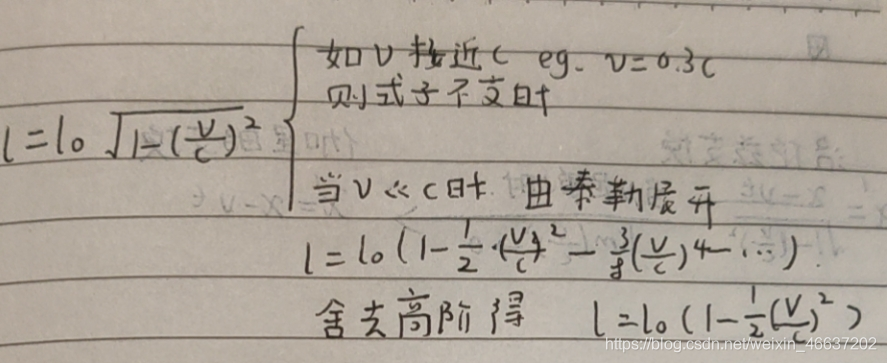 如 v 接近 c eg. v=0.3c
则式子不变时
l = l₀ √(1-(v/c)²)
当 v << c 时. 由泰勒展开
l = l₀ (1 - 1/2 · (v/c)² - 3/8 (v/c)⁴ - ...)
舍去高阶得 l = l₀ (1 - 1/2 (v/c)²)
https://blog.csdn.net/weixin_46637202